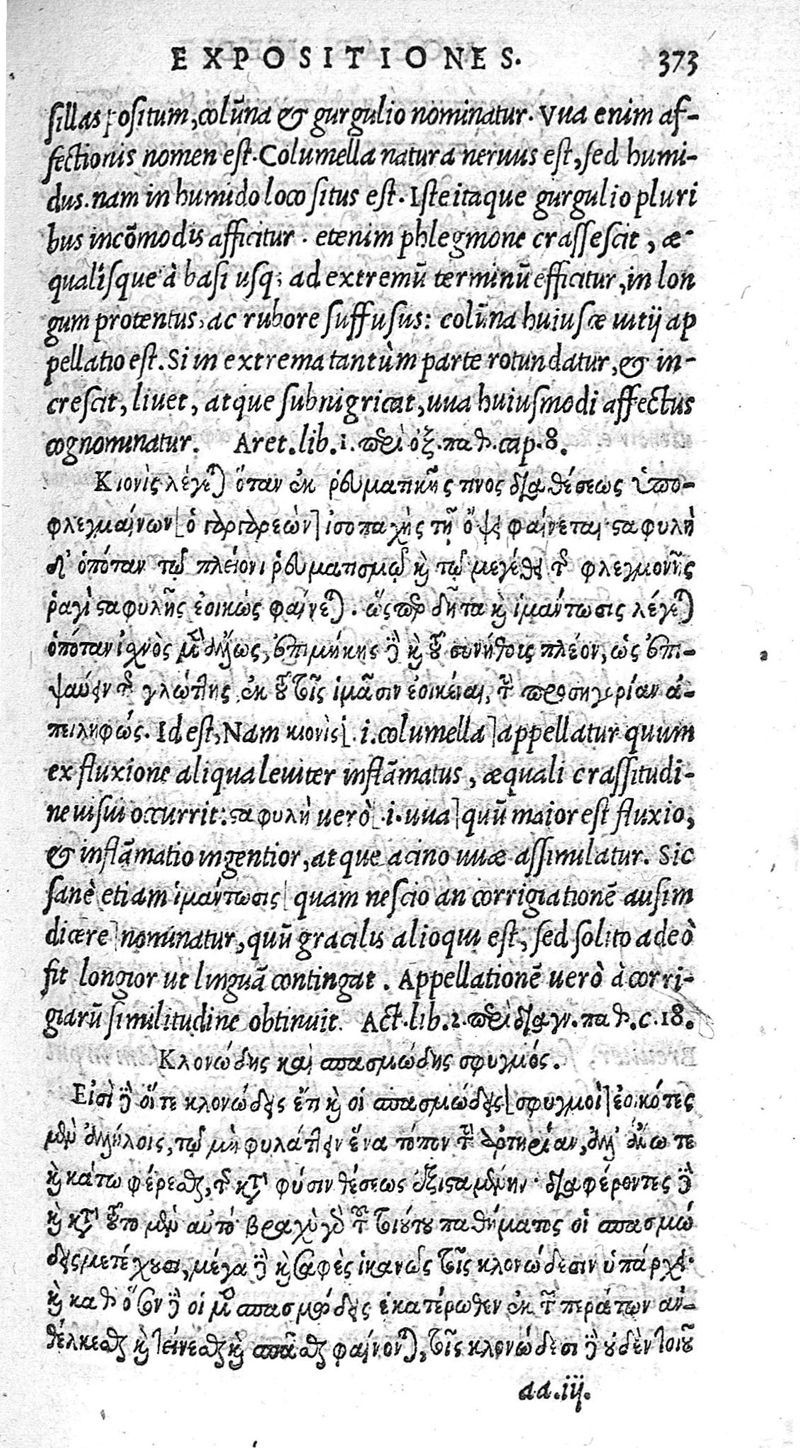 EXPOSITIONES. 373
sillas positum, colūna & gurgulio nominatur. Vua enim af-
fectionis nomen est. Columella natura neruus est, sed humi-
dus. nam in humido loco situs est. Iste itaque gurgulio pluri
bus incōmodis afficitur. etenim phlegmone crassescit, æ-
qualisque à basi usq; ad extremū terminū efficitur, in lon
gum protentus, ac rubore suffusus: colūna huiusce uitij ap
pellatio est. Si in extrema tantùm parte rotundatur, & in-
crescit, liuet, atque subnigricat, uua huiusmodi affectus
cognominatur. Aret. lib. 1. περὶ ὀξ. παθ. cap. 8.
Κιονὶς λέγεται ὅταν ἐκ ῥευματικῆς τινος διαθέσεως ὑπο-
φλεγμαίνων [ὁ γαργαρεὼν] ἰσοπαχὴς τῇ ὄψει φαίνεται· σαφυλὴ
δ' ὁπόταν τῷ πλείονι ῥευματισμῷ καὶ τῷ μεγέθει τῆς φλεγμονῆς
ῥαγὶ σταφυλῆς ἐοικὼς φαίνεται. ὥσπερ δῆτα καὶ ἱμάντωσις λέγεται
ὁπόταν ἰχνὸς μὲν ἄλλως, ἐπιμήκης δὲ καὶ τοῦ συνήθους πλέον, ὡς ἐπι-
ψαύειν τῆς γλώττης, ἐκ τοῦ τοῖς ἱμᾶσιν ἐοικέναι, τὴν προσηγορίαν ἀ-
πειληφώς. Id est, Nam κιονὶς [.i. columella] appellatur quum
ex fluxione aliqua leuiter inflāmatus, æquali crassitudi-
ne uisui occurrit: σταφυλὴ uerò [.i. uua] quū maior est fluxio,
& inflāmatio ingentior, atque acino uuæ assimulatur. Sic
sanè etiam ἱμάντωσις [quam nescio an corrigiationē ausim
dicere] nominatur, quū gracilis alioqui est, sed solito adeò
fit longior ut linguā contingat. Appellationē uerò à corri-
giarū similitudine obtinuit. Act. lib. 2. περὶ διαγν. παθ. c. 18.
Κλονώδης καὶ σπασμώδης σφυγμός.
Εἰσὶ δὲ οἵ τε κλονώδεις ἔτι καὶ οἱ σπασμώδεις [σφυγμοὶ] ἐοικότες
μὲν ἀλλήλοις, τῷ μὴ φυλάττειν ἕνα τόπον τὴν ἀρτηρίαν, ἀλλ' ἄνω τε
καὶ κάτω φέρεσθαι, τῆς κατὰ φύσιν θέσεως ἐξισταμένην· διαφέροντες δὲ
καὶ κατὰ τοῦτο μὲν αὐτὸ βραχὺ γὰρ τοῦ τοιούτου παθήματος οἱ σπασμώ
δεις μετέχουσι, μέγα δὲ καὶ σαφὲς ἱκανῶς τοῖς κλονώδεσιν ὑπάρχει·
καὶ καθ' ὅσον δὲ οἱ μὲν σπασμώδεις ἑκατέρωθεν ἐκ τῶν περάτων ἀν-
θέλκεσθαι καὶ τείνεσθαι καὶ σπᾶσθαι φαίνονται, τοῖς κλονώδεσι δὲ οὐδὲν τοιοῦ
dd. iij.